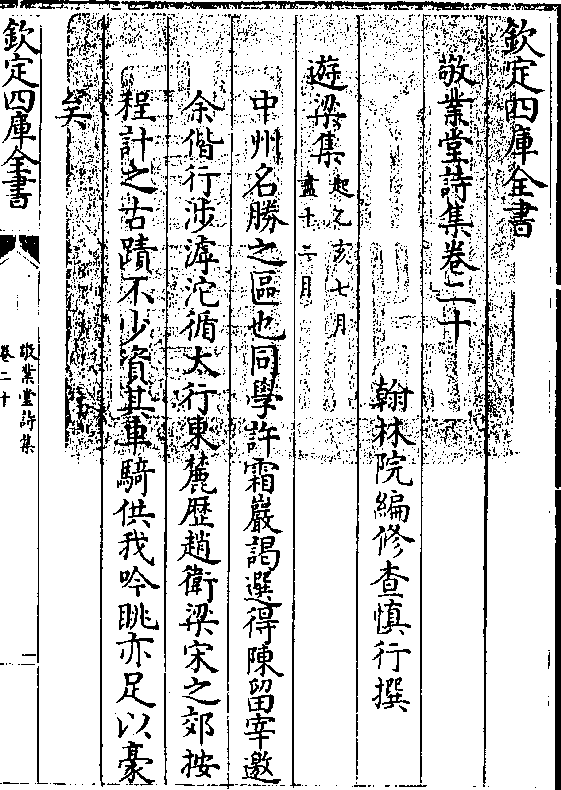 欽定四庫全書
敬業堂詩集卷二十
翰林院編修查慎行撰
遊梁集起乙亥七月
盡十二月
中州名勝之區也同學許霜巖謁選得陳留宰邀
余偕行涉滹沱循太行東麓歷趙衛梁宋之郊按
程計之古蹟不少資其車騎供我吟眺亦足以豪
矣
欽定四庫全書
敬業堂詩集
卷二十
一